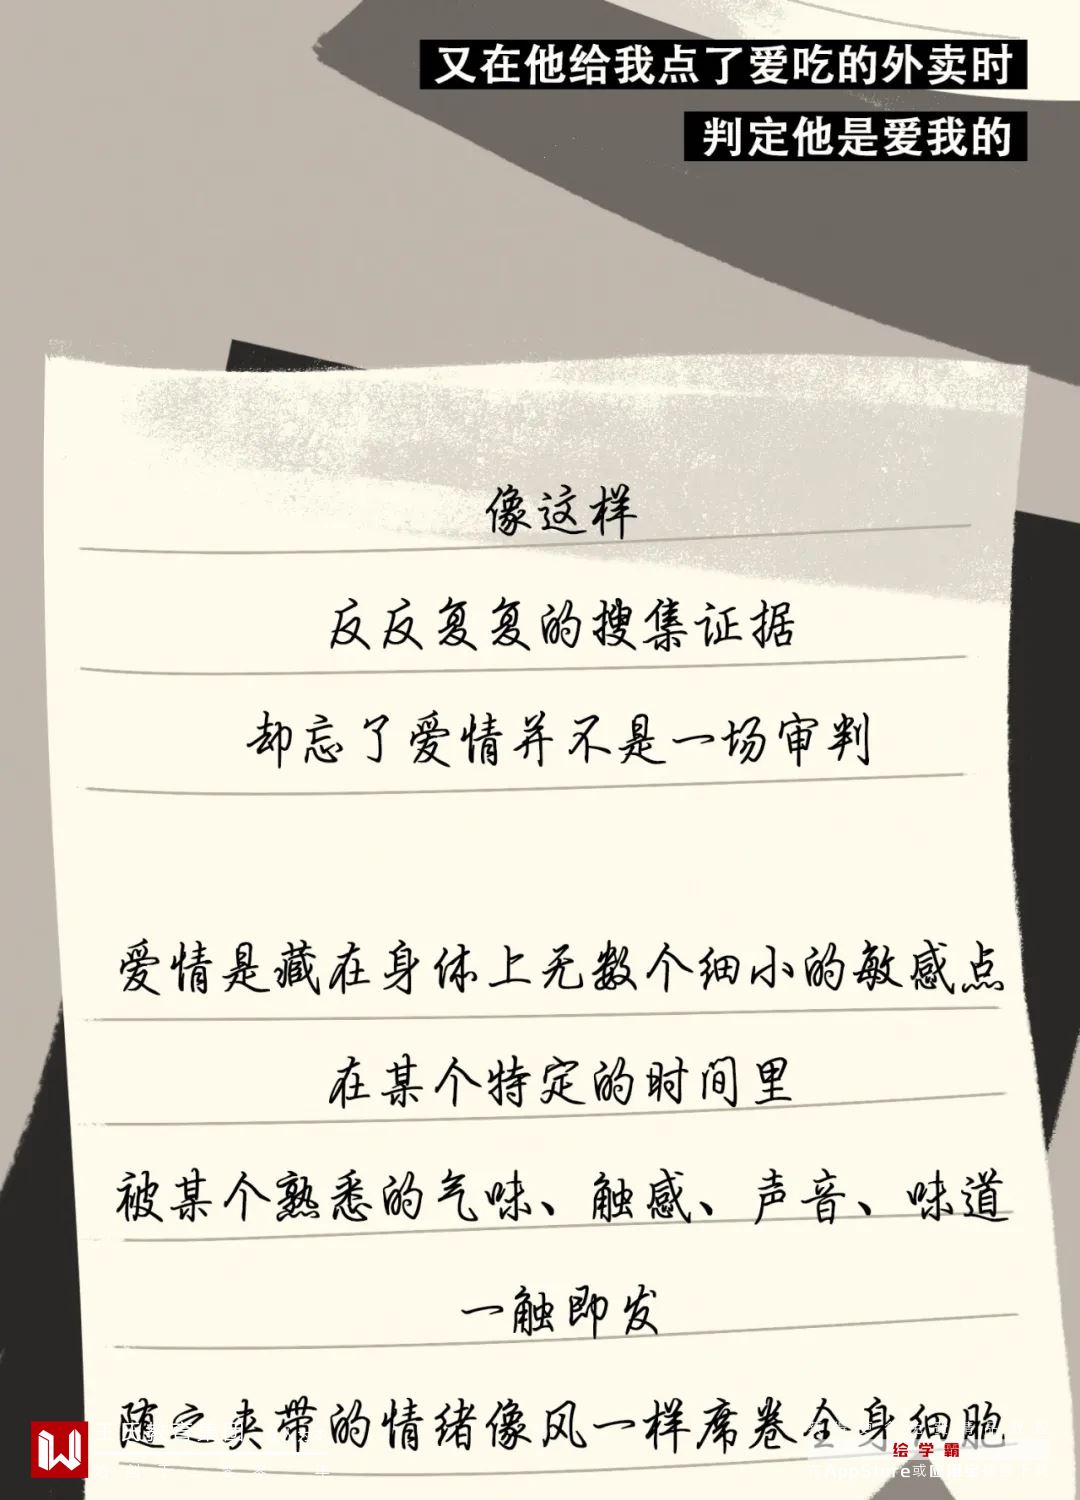 又在他给我点了爱吃的外卖时
判定他是爱我的
像这样
反反复复的搜集证据
却忘了爱情并不是一场审判
爱情是藏在身体上无数个细小的敏感点
在某个特定的时间里
被某个熟悉的气味、触感、声音、味道
一触即发
随之夹带的情绪像风一样席卷全身细胞
绘学霸